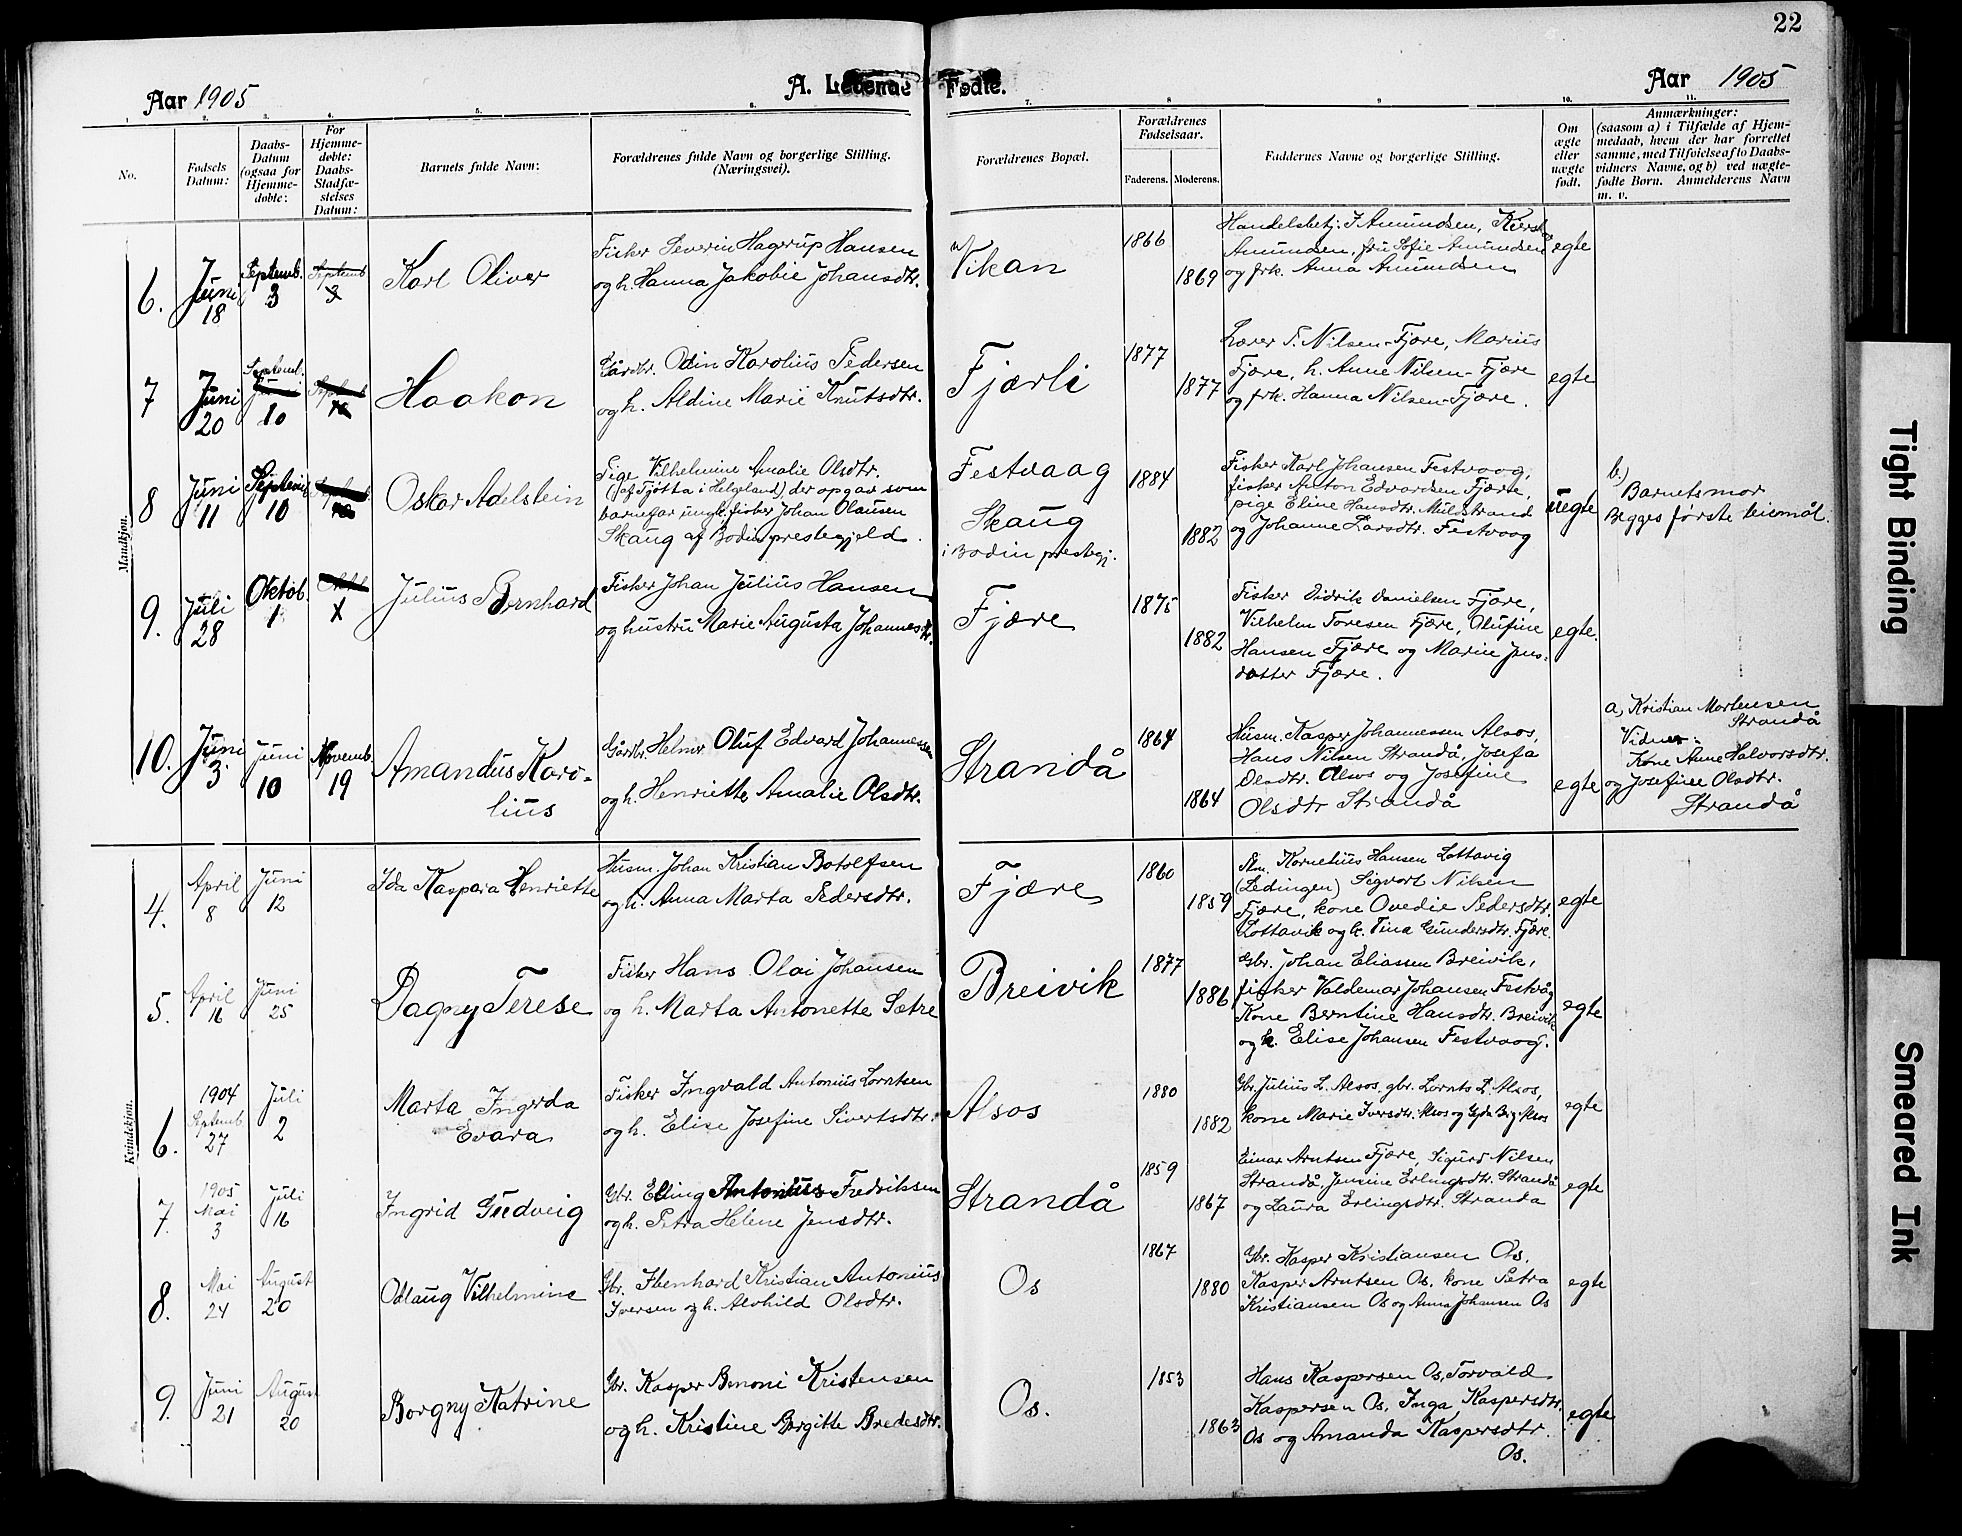 22
Aar 1905
A. Levende Fødte.
Aar 1905
1. 2. 3. 4. 5. 6. 7. 8 9 10. 11.
No.
Fødsels Datum:
Daabs-Datum (ogsaa for Hjemme-døbte:
For Hjemme-døbte: Daabs-Stadfæ-stelses Datum:
Barnets fulde Navn:
Forældrenes fulde Navn og borgerlige Stilling. (Næringsvei).
Forældrenes Bopæl.
Forældrenes Fødselsaar.
Faderens. Moderens.
Faddernes Navne og borgerlige Stilling.
Om ægte eller uægte født.
Anmærkninger:
(saasom a) i Tilfælde af Hjem-
medaab, hvem der har forrettet
samme, med Tilføielse af to Daabs-
vidners Navne, og b) ved uægte-
fødte Børn. Anmelderens Navn
m. v.
Mandkjøn.
6. Juni 18
Septemb. 3
Septemb 3
Karl Oliver
Fisker Severin Hagerup Hansen
og h. Hanna Jakobie Johansdtr.
Vikan
1866
1869
Handelsbetj. J. Amundsen,
Amundsen, fru Sofie Amundsen
og frk. Anna Amundsen
egte
7 Juni 20
Septemb. 10
Haakon
Gårdbr. Odin Karolius Pedersen
og h. Aldine Marie Knutsdtr.
Fjærli
1877
1877
Lærer P. Nilsen-Fjære, Marius
Fjære, h. Anne Nilsen-Fjære
og frk. Hanna Nilsen-Fjære.
egte
8 Juni 11
Septemb 10
Oskar Adelstein
Pige Vilhelmine Amalie Olsdtr.
(af Tjøtta i Helgeland) der opgav som
barnefar ungk. fisker Johan Olausen
Skaug af Bodin prestegjeld.
Festvaag
Skaug
i Bodin prestegj.
1884
1882
Fisker Karl Johansen Festvaag,
fisker Anton Edvardsen Fjære,
pige Eline Hansdtr. Mulstrand
og Johanne Larsdtr. Festvaag
uegte
b)
Barnets mor
Begges første leiemål.
9. Juli 28
Oktob. 1
Julius Bernhard
Fisker Johan Julius Hansen
og hustru Marie Augusta Johannesdtr.
Fjære
1875
1882
Fisker Didrik Danielsen Fjære,
Vilhelm Toresen Fjære, Olufine
Hansen Fjære og Marie Jens-
datter Fjære.
egte.
10. Juni 3.
Juni 10
Novemb. 19
Amandus Karo-
lius
Gårdbr. Helmer Oluf Edvard Johannessen
og h. Henriette Amalie Olsdtr.
Strandå
1864
1864
Husm. Kasper Johannessen Alsos,
Hans Nilsen Strandå, Josefa
Olsdtr. Alsos og Josefine
Olsdtr Strandå
egte
a, Kristian Mortensen
Strandå
Vidner:
Kone Anne Halvorsdtr.
og Josefine Olsdtr.
Strandå
Kvindekjøn.
4. April 8
Juni 12
Ida Kaspara Henriette
Husm. Johan Kristian Botolfsen
og h. Anna Marta Pedersdtr.
Fjære
1860
1859
Kornelius Hansen Lottavig
(Lødingen) Sigvart Nilsen
Fjære, kone Ovedie Pedersdtr.
Lottavik og k. Tina Gundersdtr. Fjære.
egte
5. April 16
Juni 25
Dagny Terese
Fisker Hans Olai Johansen
og h. Marta Antonette Sætre
Breivik
1877
1886
Gbr. Johan Eliassen Breivik,
fisker Valdemar Johansen Festvåg
Kone Berntine Hansdtr. Breivik
og k. Elise Johansen Festvaag.
egte
6. 1904 Septemb 27
Juli 2
Marta Ingerda
Evara
Fisker Ingvald Antonius Lorntsen
og h. Elise Josefine Sivertsdtr.
Alsos
1880
1882
Gbr. Julius L. Alsos, gbr. Lornts L. Alsos,
kone Marie Iversdtr. Alsos og Gyda Alsos
egte
7. 1905 Mai 3
Juli 16
Ingrid Gudveig
Gbr. Elling Antonius Fredriksen
og h. Petra Helene Jensdtr.
Strandå
1859
1867
Einar Arntsen Fjære, Sigurd Nilsen
Strandå, Jensine Erlingsdtr. Strandå
og Laura Erlingsdtr. Stranda
egte
8. Mai 24
August 20
Odlaug Vilhelmine
Gbr. Ibenhard Kristian Antonius
Iversen og h. Alvhild Olsdtr.
Os
1867
1880
Gbr. Kasper Kristiansen Os,
Kasper Arntsen Os, kone Petra
Kristiansen Os og Anna Johansen Os
egte
9. Juni 21
August 20
Borgny Katrine
Gbr. Kasper Benoni Kristensen
og h. Kristine Bergitte Bredesdtr.
Os.
1853
1863
Hans Kaspersen Os, Torvald
Kaspersen Os, Inga Kaspersdtr.
Os og Amanda Kaspersdtr.
Os.
egte
Tight Binding
Smeared Ink